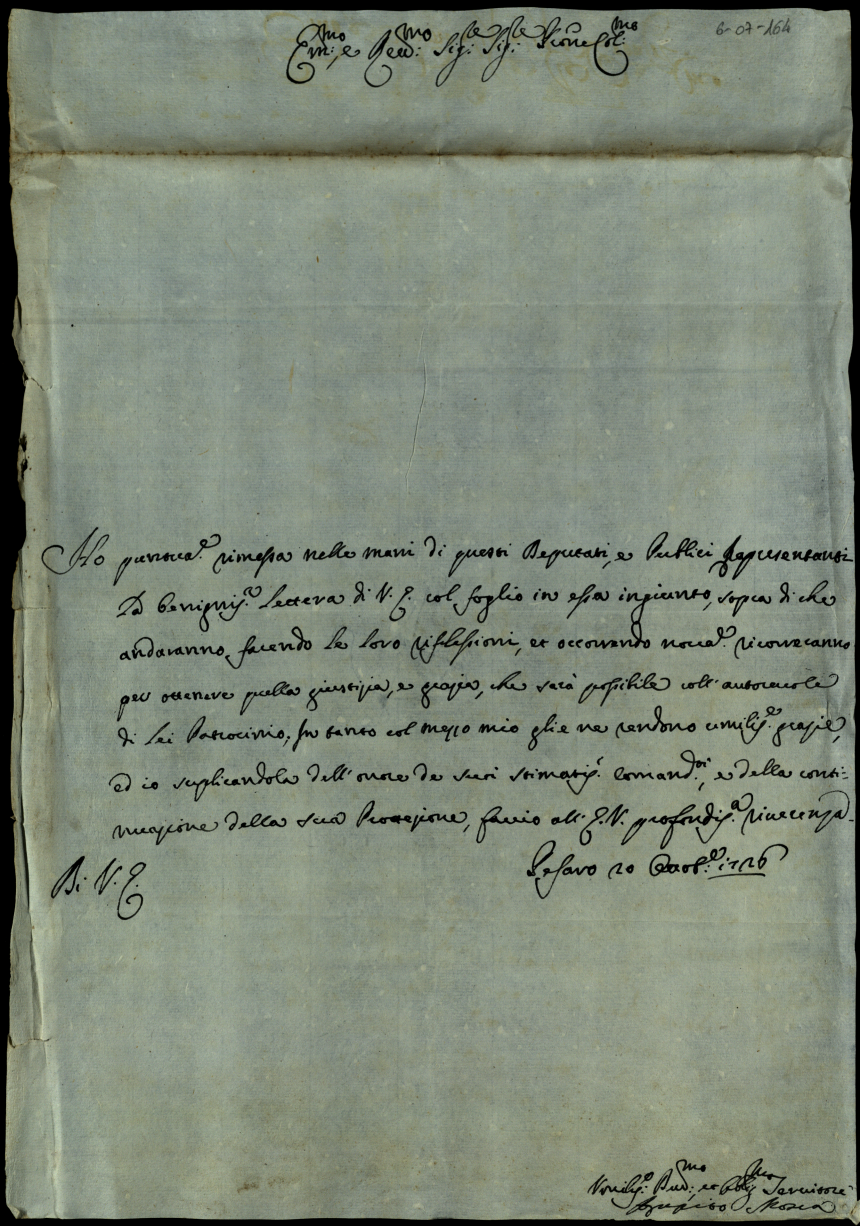 6-07-164
Em:mo, e Rev:mo Sig:re Sig:re Prone Col:mo
Ho puntua:te rimessa nelle mani di questi Deputati, e Publici Rapresentanti
La benignis:a Lettera di V. E. col foglio in essa ingiunto, sopra di che
andaranno facendo le loro riflessioni, et occorrendo nova:te ricorreranno
per ottenere quella giustizia, e grazia, che sarà possibile coll' autorevole
di Lei Patrocinio; In tanto col mezzo mio glie ne rendono umilis:e grazie,
ed io suplicandola dell' onore de suoi stimatis:i comand:i, e della conti-
nuazione della sua Protezione, faccio all' E. V. profondis:a riverenza.
Di V. E.
Pesaro 20 Ottob:e 1726
Umilis:o Dev:mo, et Obli:mo Servitore
Mosca